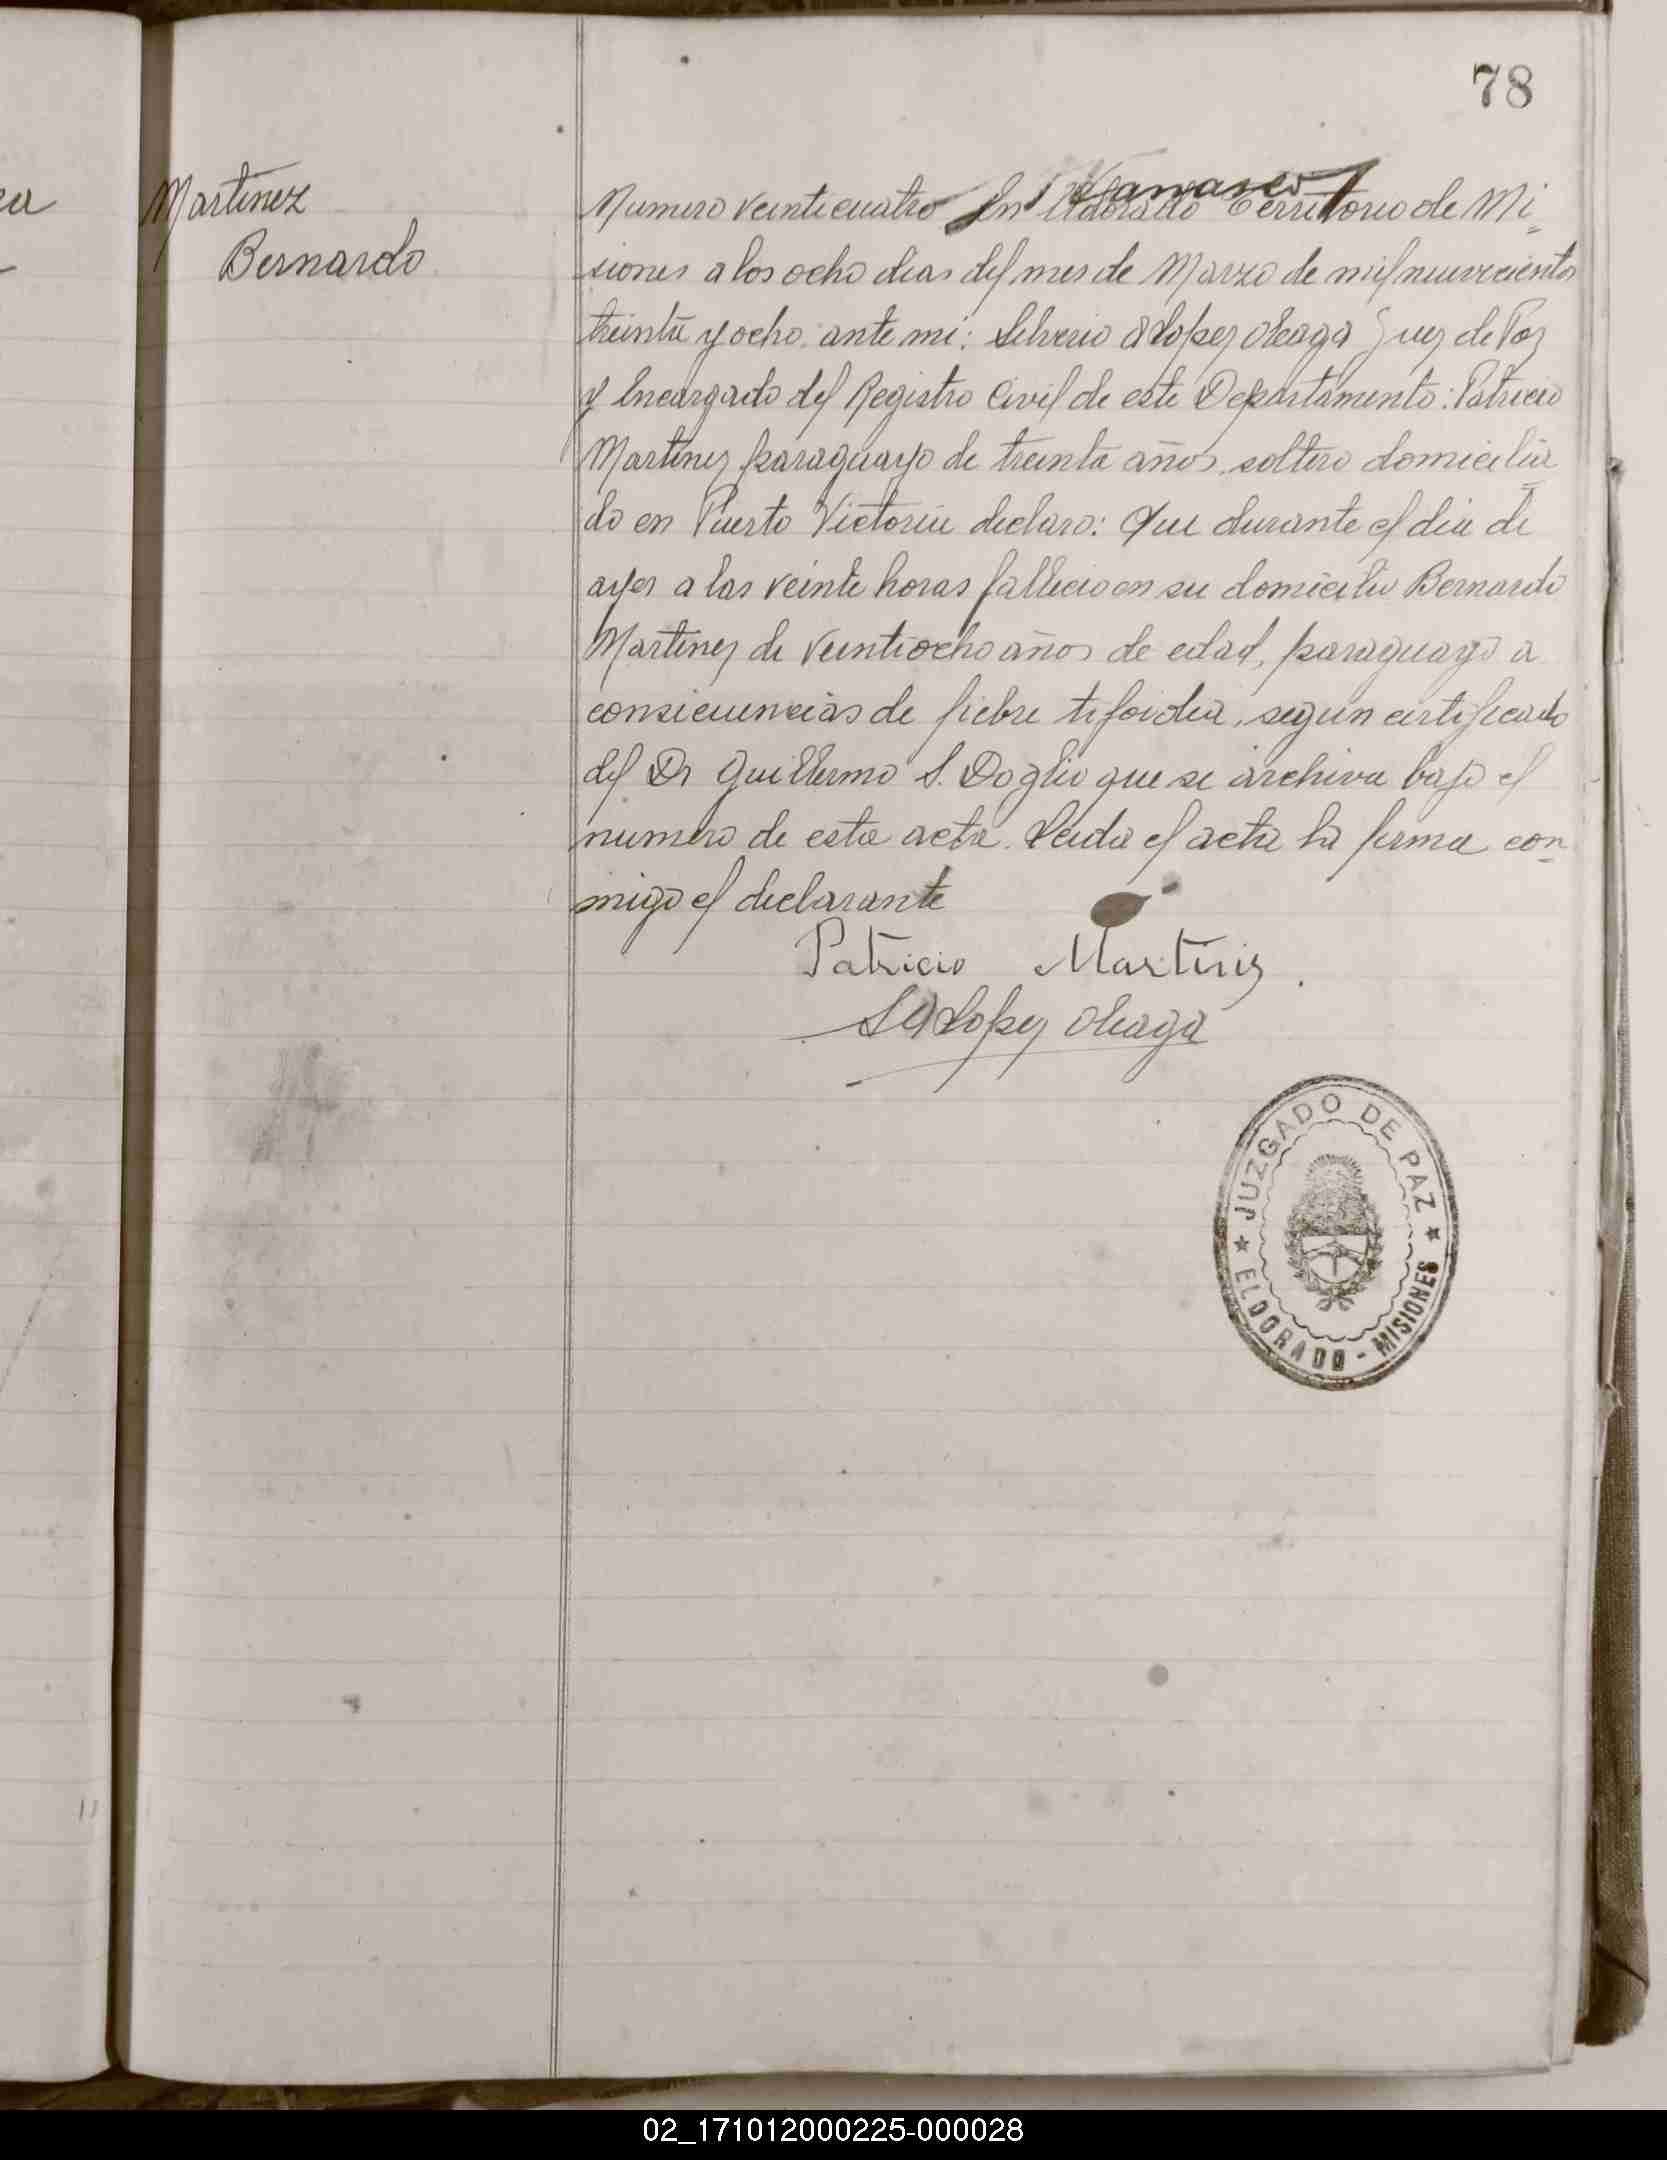 78
Martinez
Bernardo
Numero veinticuatro En Eldorado Territorio de Mi=
siones a los ocho dias del mes de Marzo de mil nuevecientos
treinta y ocho, ante mi: Silverio A Lopez Oleaga Juez de Paz
y Encargado del Registro Civil de este Departamento: Patricio
Martinez paraguayo de treinta años, soltero domicilia=
do en Puerto Victoria declaro: Que durante el dia de
ayer a las veinte horas fallecio en su domicilio Bernardo
Martinez de veintiocho años de edad, paraguayo a
consicuencias de fiebre tifoidea, segun certificado
del Dr Guillermo S. Doglio que se archiva bajo el
numero de esta acta. Leida el acta la firma con=
migo el declarante
Patricio Martinez.
S A Lopez Oleaga
JUZGADO DE PAZ
ELDORADO - MISIONES
02_171012000225-000028